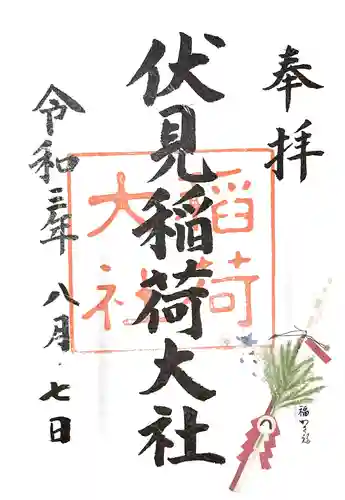 奉拝
伏見稲荷大社
稲荷
大社
令和三年 八月 七日